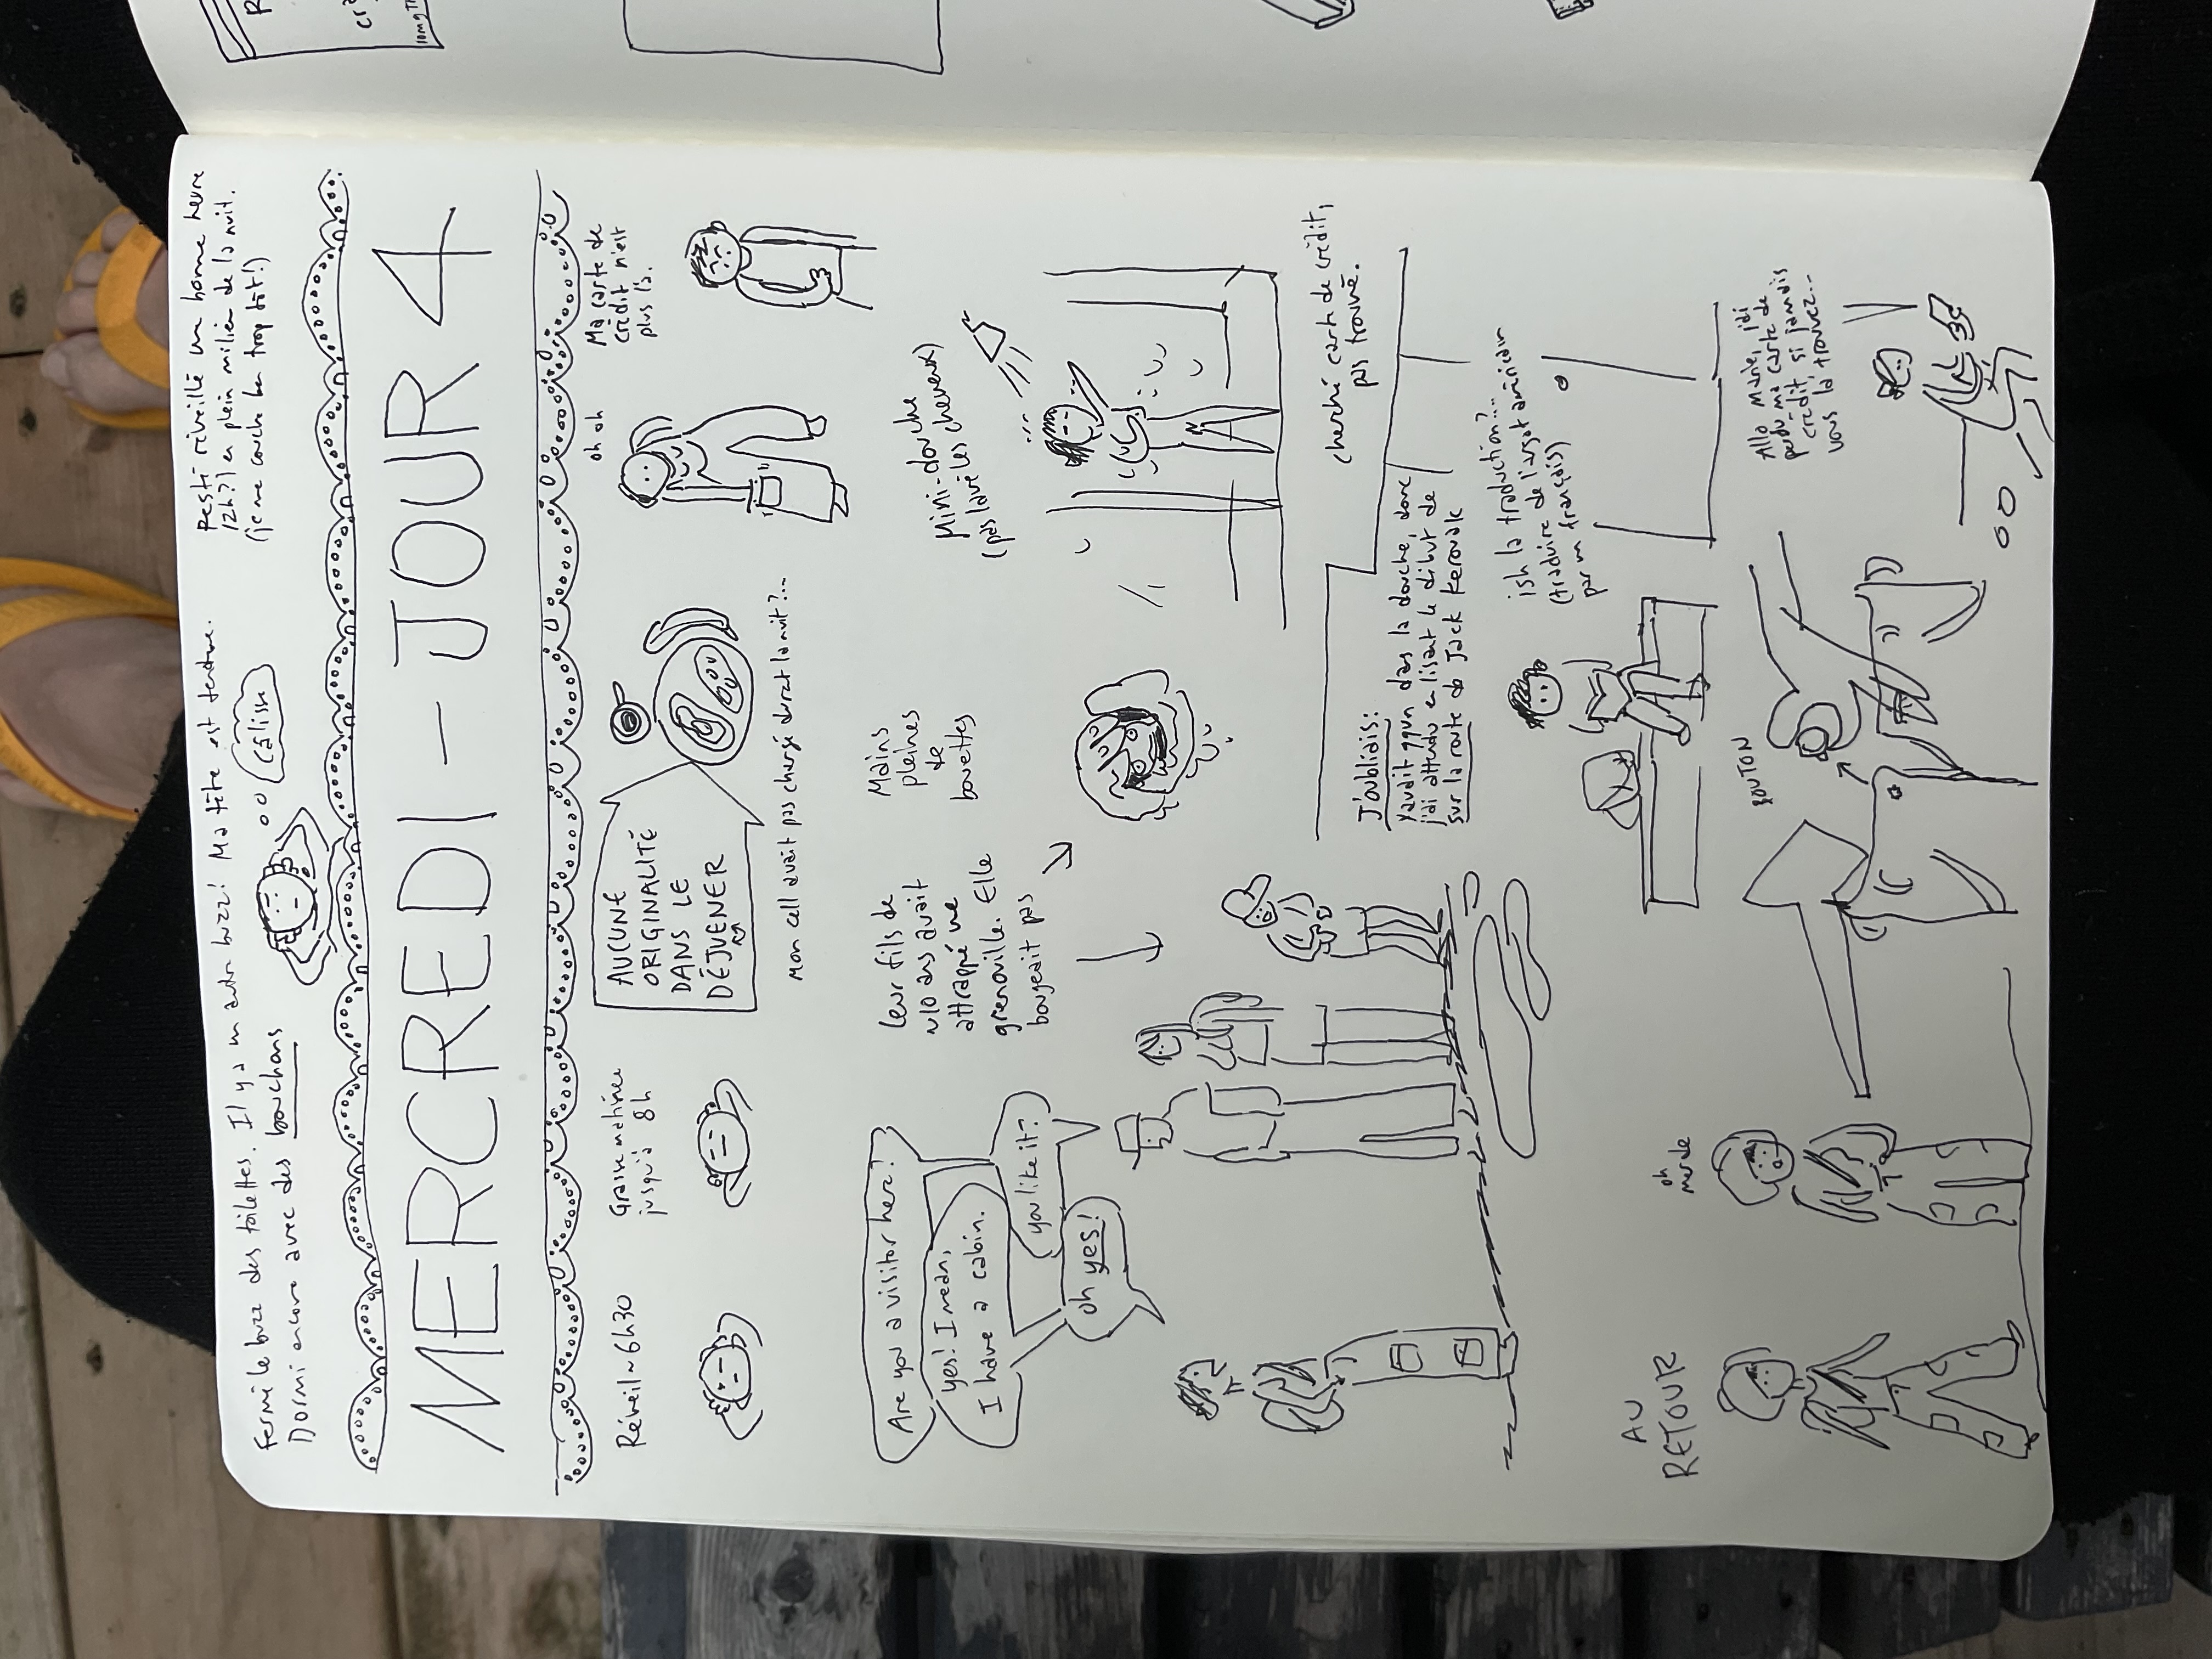 Fermé le buzz des toilettes. Il y a un autre buzz! Ma tête est tendue.
Dormi encore avec des bouchons
câlisse
Resté réveillé un bonne heure
(2h?) en plein milieu de la nuit.
(je me couche ben trop tôt!)
MERCREDI - JOUR 4
Réveil ~ 6h30
Grasse matinée
jusqu'à 8h
AUCUNE
ORIGINALITÉ
DANS LE
DÉJEUNER
oh oh
Ma carte de
crédit n'est
plus là.
Mon cell avait pas chargé durant la nuit?...
Are you a visitor here?
yes! I mean,
I have a cabin.
you like it?
oh yes!
Leur fils de
~10 ans avait
attrappé une
grenouille. Elle
bougeait pas
Mains
pleines
de
bouettes
Mini-douche
(pas lavé les cheveux)
cherché carte de crédit,
pas trouvé.
J'oubliais:
Yavait qqun dans la douche, donc
j'ai attendu en lisant le début de
sur la route de Jack Kerouak
ish la traduction?...
(traduire de l'argot américain
par un français)
AU
RETOUR
oh
merde
BOUTON
Allo Marie, j'ai
perdu ma carte de
crédit, si jamais
vous la trouvez...